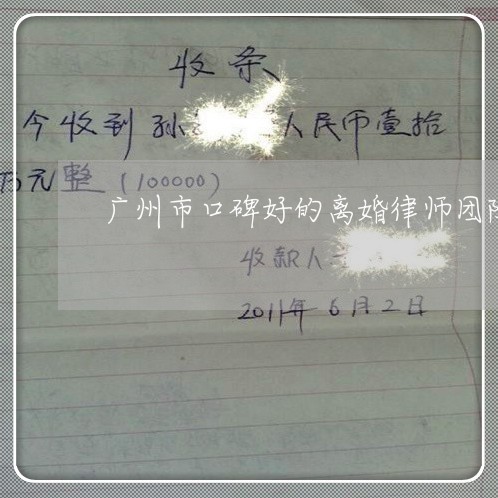 收条
今收到孙 人民币壹拾
万元整(100000)
广州市口碑好的离婚律师团队
收款人
2011年6月2日